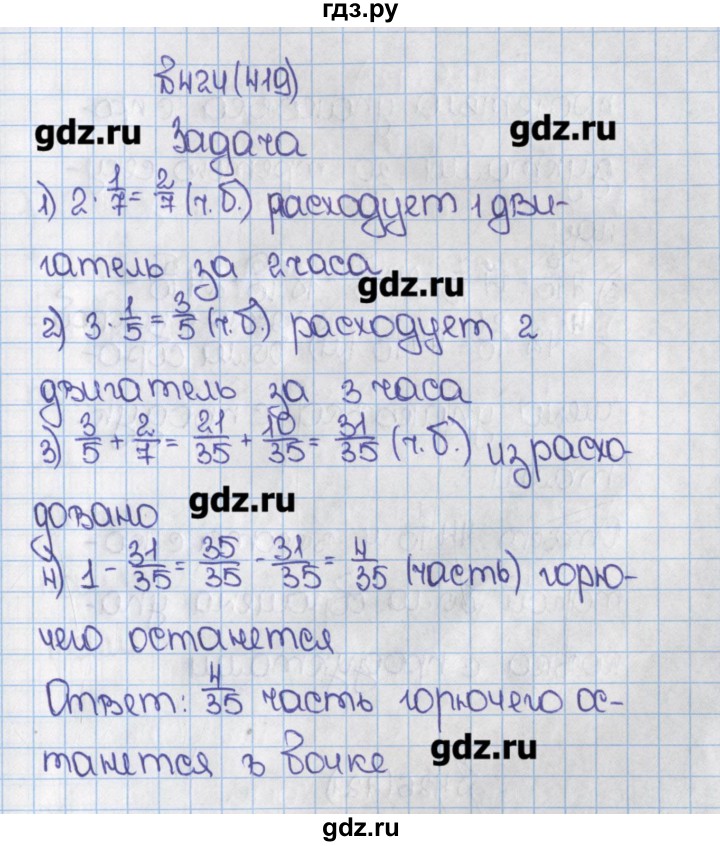 гдз.ру
в 424 (419)
gdz.ru
gdz.ru
Задача
1) 2 · 1/7 = 2/7 (ч. б.) расходует 1 дви-
гатель за 2 часа
gdz.ru
2) 3 · 1/5 = 3/5 (ч. б.) расходует 2
двигатель за 3 часа
3) 3/5 + 2/7 = 21/35 + 10/35 = 31/35 (ч. б.) израсхо-
gdz.ru
довано
4) 1 - 31/35 = 35/35 - 31/35 = 4/35 (часть) горю-
чего останется
Ответ: 4/35 часть горючего ос-
танется в бочке
gdz.ru
gdz.ru